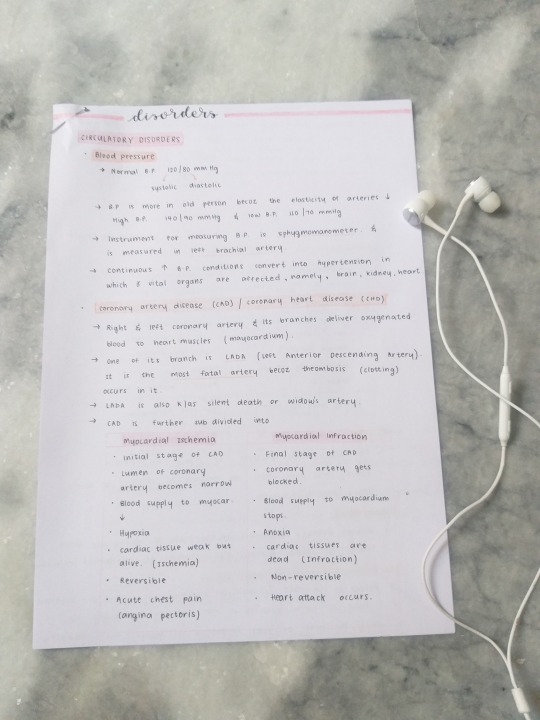 disorders
CIRCULATORY DISORDERS
· Blood pressure
→ Normal B.P. 120/80 mm Hg
systolic diastolic
→ B.P is more in old person becoz the elasticity of arteries ↓
High B.P. 140/90 mmHg & low B.P. 110/70 mmHg
→ Instrument for measuring B.P. is sphygmomanometer. &
is measured in left brachial artery
→ Continuous ↑ B.P conditions convert into hypertension in
which & vital organs are affected, namely, brain, kidney, heart
· coronary artery disease (CAD) / coronary heart disease (CHD)
→ Right & left coronary artery & its branches deliver oxygenated
blood to heart muscles (mayocardium).
→ One of its branch is LADA (left Anterior Descending Artery).
It is the most fatal artery becoz theombosis (clotting)
occurs in it.
→ LADA is also k/as silent death or widow's artery.
→ CAD is further sub divided into
Myocardial Ischemia
· initial stage of CAD
· Lumen of coronary
artery becomes narrow
· Blood supply to myocar.
↓
· Hypoxia
· cardiac tissue weak but
alive. (Ischemia)
· Reversible
· Acute chest pain
(angina pectoris)
Myocardial Infraction
· Final stage of CAD
· coronary artery gets
blocked.
· Blood supply to myocardium
stops.
· Anoxia
· cardiac tissues are
dead (Infraction)
· Non-reversible
· Heart attack occurs.